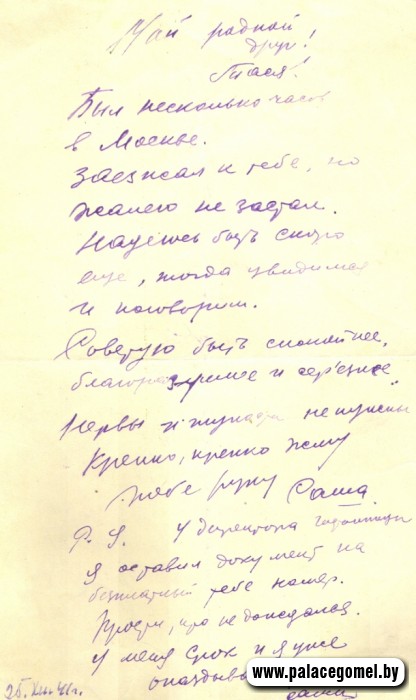 Мой родной
друг!
Тася!
Был несколько часов
в Москве.
Заезжал к тебе, но
жалею не застал.
Надеюсь быть скоро
еще, тогда увидимся
и поговорим.
Советую быть спокойнее,
благоразумнее и серьезнее.
Нервы и не нужны
Крепко, крепко жму
тебе руку Саша.
P.S. У директора гостиницы
я оставил документ на
бесплатный тебе номер.
Прости, что не дождался.
У меня срок и я уже
опаздываю
Саша
46г.
www.palacegomel.by